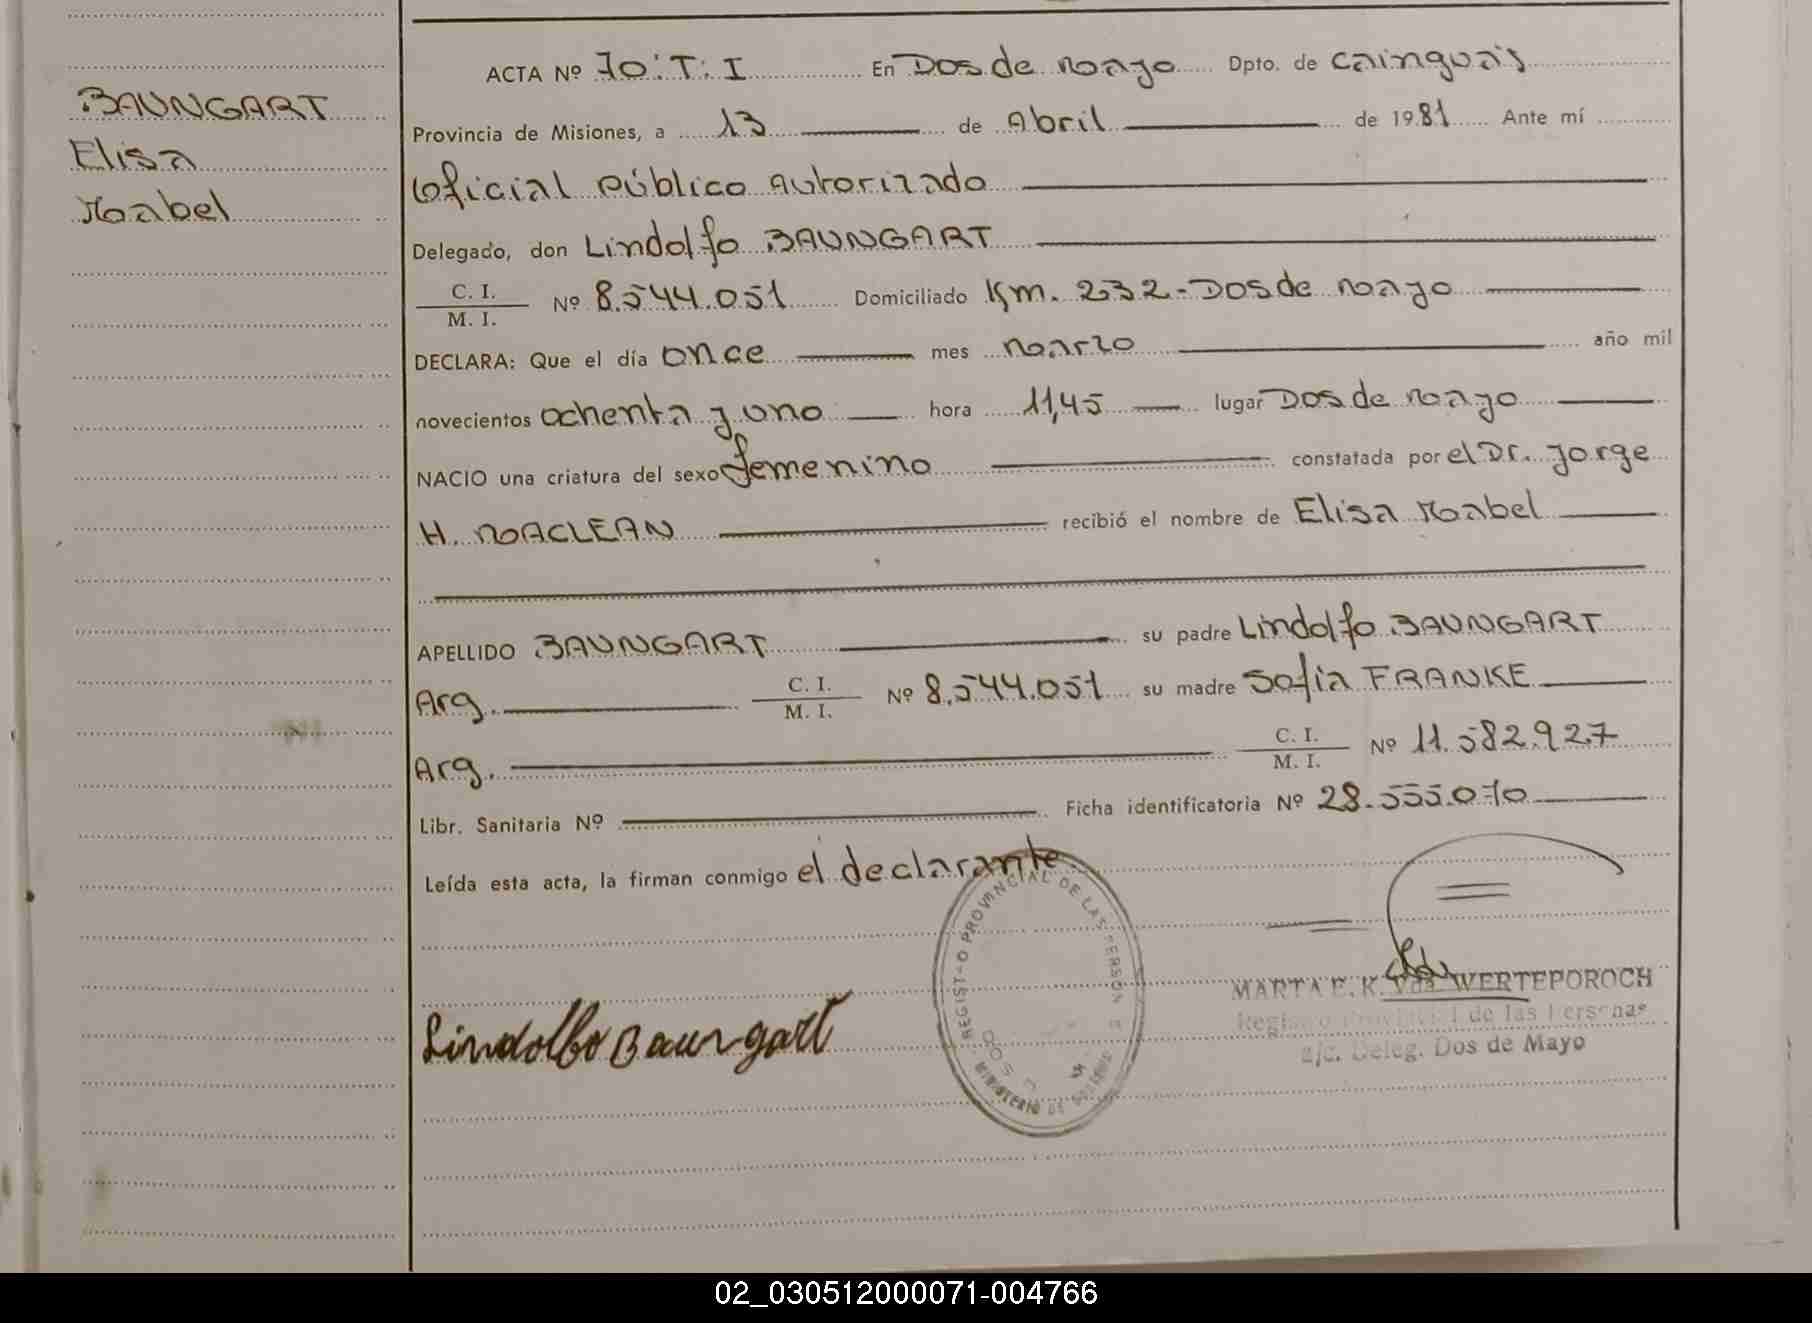 BAUNGART
Elisa
Mabel
ACTA Nº 70:T:I En Dos de Mayo Dpto. de Cainguás
Provincia de Misiones, a 13 de Abril de 1981 Ante mí
Oficial Público Autorizado
Delegado, don Lindolfo BAUNGART
C. I.
M. I. Nº 8.544.051 Domiciliado Km. 232-Dos de Mayo
DECLARA: Que el día once mes Marzo año mil
novecientos ochenta y uno hora 11,45 lugar Dos de Mayo
NACIO una criatura del sexo femenino constatada por el Dr. Jorge
H. MACLEAN recibió el nombre de Elisa Mabel
APELLIDO BAUNGART su padre Lindolfo BAUNGART
Arg. C. I.
M. I. Nº 8.544.051 su madre Sofia FRANKE
Arg. C. I.
M. I. Nº 11.582.927
Libr. Sanitaria Nº Ficha identificatoria Nº 28.555.070
Leída esta acta, la firman conmigo el declarante
REGISTRO PROVINCIAL DE LAS PERSON
MINISTERIO DE
Lindolfo Baungart
MARTA E. K. Vda WERTEPOROCH
Registro Provincial de las Personas
a/c. Deleg. Dos de Mayo
02_030512000071-004766